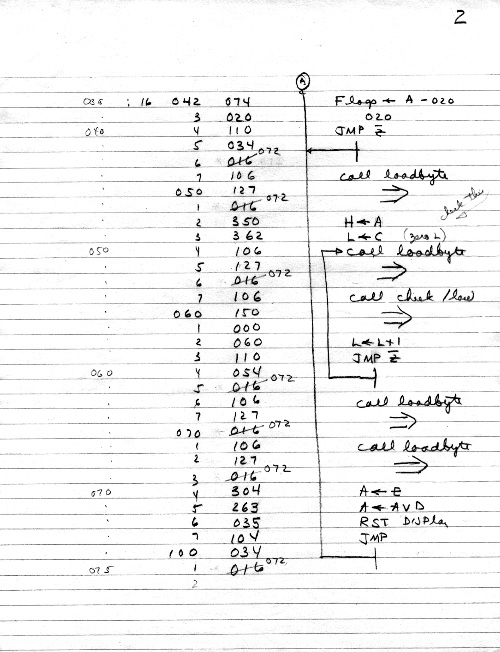 2
A
036 : 16 042 074 Flags ← A - 020
3 020 020
040 4 110 JMP Z̅
5 034
6 016 072
7 106 call loadbyte
050 127
1 016 072 check this
2 350 H ← A
3 362 L ← C (zero L)
050 4 106 call loadbyte
5 127
6 016 072
7 106 call check/load
060 150
1 000
2 060 L ← L+1
3 110 JMP Z̅
060 4 054
5 016 072
6 106 call loadbyte
7 127
070 016 072
1 106 call loadbyte
2 127
3 016 072
070 4 304 A ← E
5 263 A ← A V D
6 035 RST Display
7 104 JMP
100 034
075 1 016 072
2